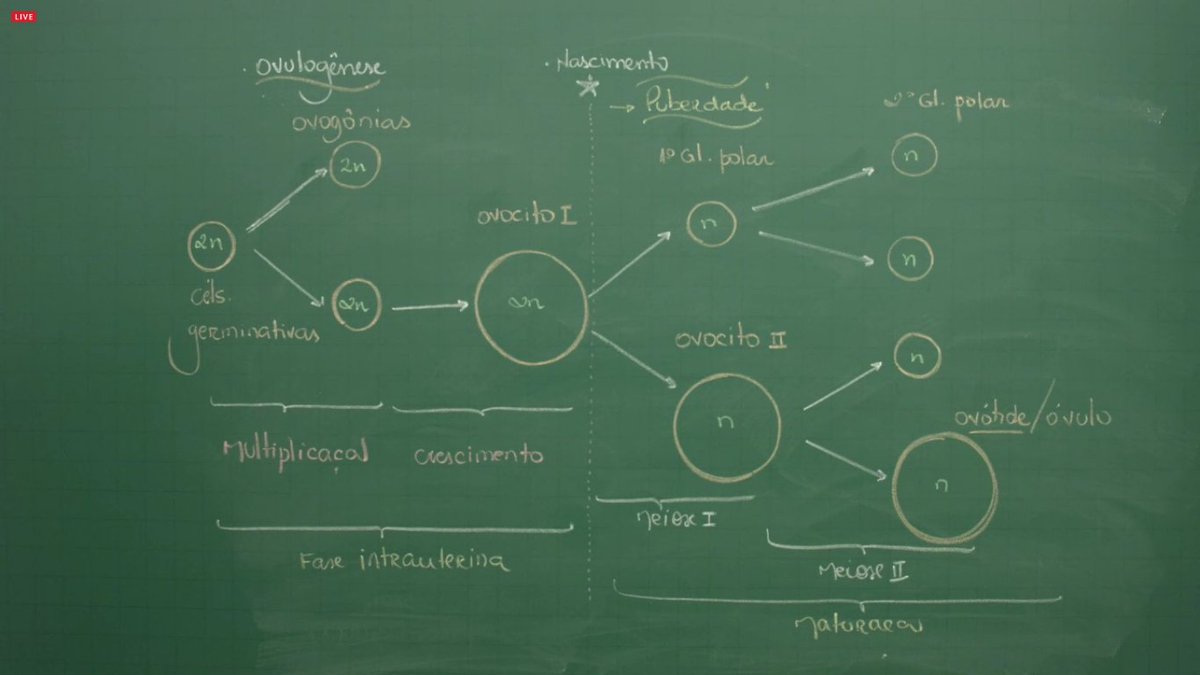 LIVE
. Ovulogênese
. Nascimento
→ Puberdade
2º Gl. polar
ovogônias
2n
1º Gl. polar
n
ovocito I
n
2n
n
céls.
germinativas
2n
2n
ovocito II
n
n
ovótide/óvulo
n
Multiplicaçaõ
crescimento
Meiose I
Fase intrauterina
Meiose II
Maturaçaõ